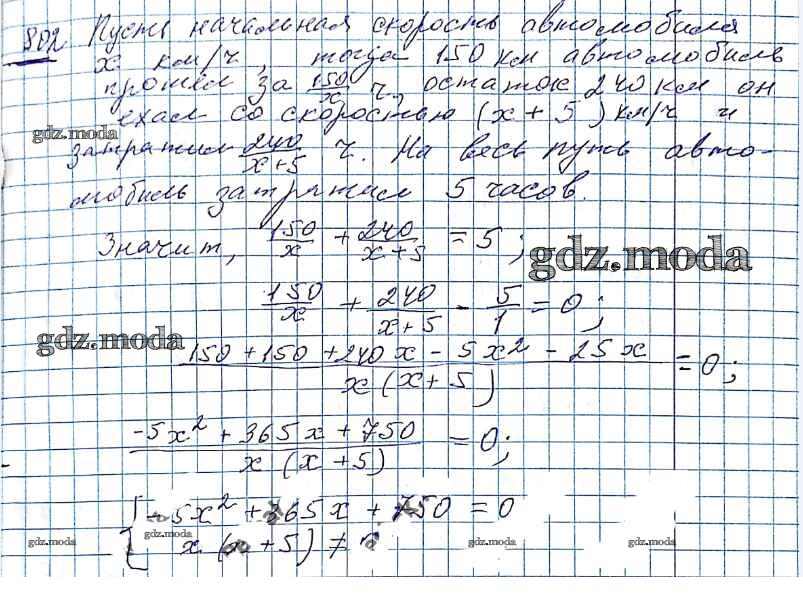 802 Пусть начальная скорость автомобиля
x км/ч, тогда 150 км автомобиль
прошел за 150/x ч., остаток 240 км он
ехал со скоростью (x + 5) км/ч и
gdz.moda
затратил 240/x+5 ч. На весь путь авто-
мобиль затратил 5 часов.
Значит, 150/x + 240/x+5 = 5;
gdz.moda
150/x + 240/x+5 - 5/1 = 0;
gdz.moda
150 + 150 + 240x - 5x² - 25x / x(x+5) = 0;
-5x² + 365x + 750 / x(x+5) = 0;
{ -5x² + 365x + 750 = 0
x(x+5) ≠
gdz.moda gdz.moda gdz.moda gdz.moda
gdz.moda